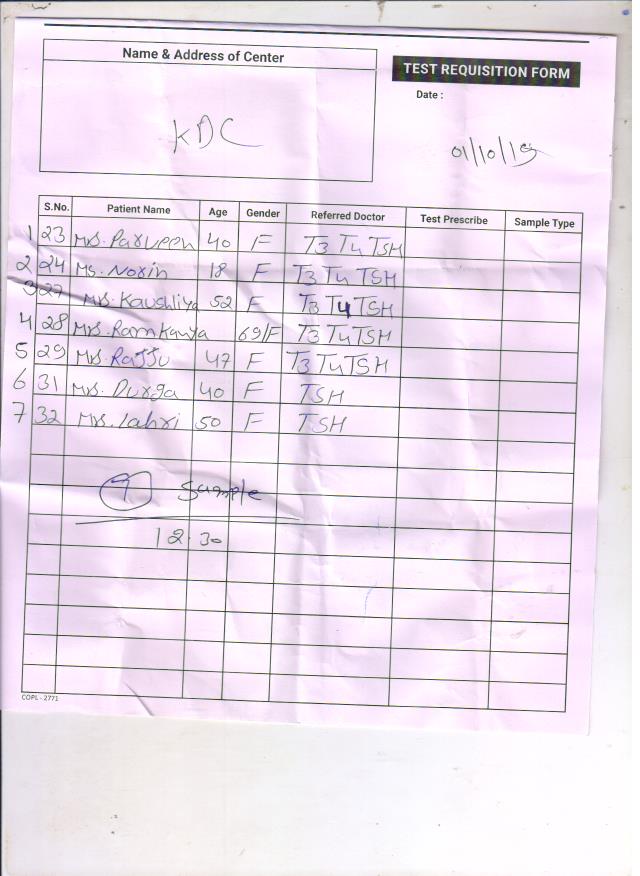 Name & Address of Center
TEST REQUISITION FORM
Date :
KDC
01/10/19
S.No. Patient Name Age Gender Referred Doctor Test Prescribe Sample Type
1 23 Mrs. Parveen 40 F T3 T4 TSH
2 24 Ms. Norin 18 F T3 T4 TSH
3 27 Mrs. Kaushliya 52 F T3 T4 TSH
4 28 Mrs. Ramkanya 69/F T3 T4 TSH
5 29 Mrs. Rajju 47 F T3 T4 TSH
6 31 Mrs. Durga 40 F TSH
7 32 Mrs. Lahri 50 F TSH
7 Sample
12.30
COPL - 2771